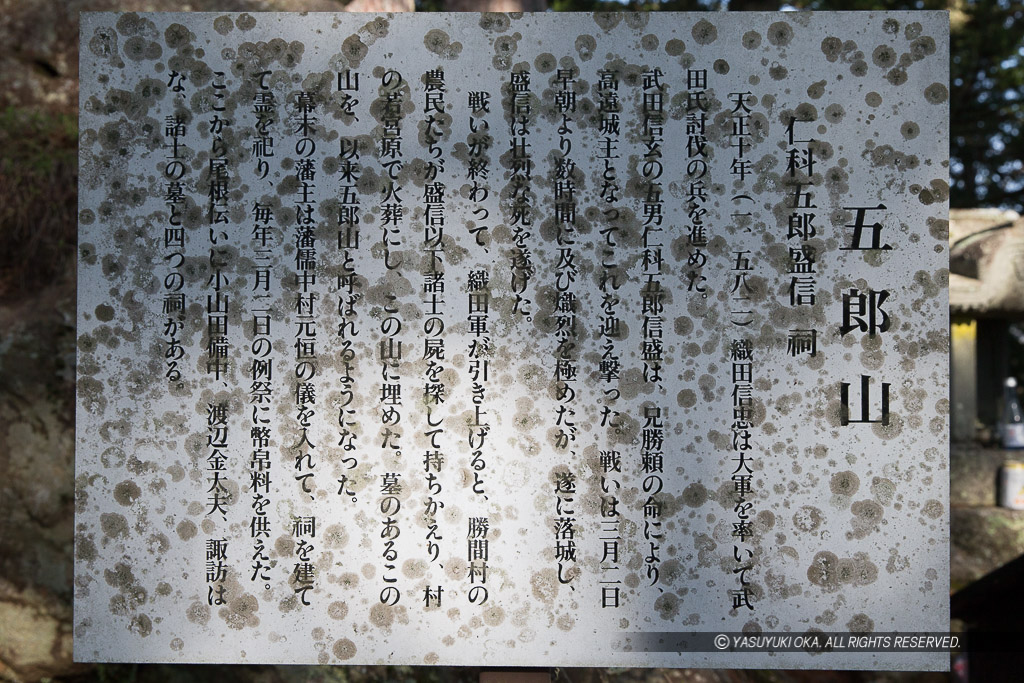 五郎山
仁科五郎盛信 祠
天正十年（一、五八二）織田信忠は大軍を率いて武
田氏討伐の兵を進めた。
武田信玄の五男仁科五郎信盛は、兄勝頼の命により、
高遠城主となってこれを迎え撃った。戦いは三月二日
早朝より数時間に及び熾烈を極めたが、遂に落城し、
盛信は壮烈な死を遂げた。
戦いが終わって、織田軍が引き上げると、勝間村の
農民たちが盛信以下諸士の屍を探して持ちかえり、村
の若宮原で火葬にし、この山に埋めた。墓のあるこの
山を、以来五郎山と呼ばれるようになった。
幕末の藩主は藩儒中村元恒の儀を入れて、祠を建て
て霊を祀り、毎年三月二日の例祭に幣帛料を供えた。
ここから尾根伝いに小山田備中、渡辺金太夫、諏訪は
な、諸士の墓と四つの祠がある。
© YASUYUKI OKA. ALL RIGHTS RESERVED.